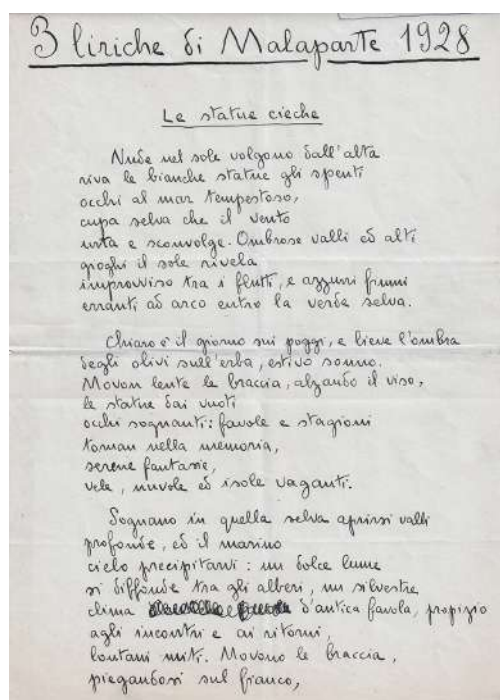 3 liriche di Malaparte 1928
Le statue cieche
Nude nel sole volgono dall'alta
riva le bianche statue gli spenti
occhi al mar tempestoso,
cupa selva che il vento
urta e sconvolge. Ombrose valli ed alti
gioghi il sole rivela
improvviso tra i flutti, e azzurri fiumi
erranti ad arco entro la verde selva.
Chiaro è il giorno sui poggi, e lieve l'ombra
degli olivi sull'erba, estivo sonno.
Movon lente le braccia, alzando il viso,
le statue dai vuoti
occhi sognanti: favole e stagioni
tornan nella memoria,
serene fantasie,
vele, nuvole ed isole vaganti.
Sognano in quella selva aprirsi valli
profonde, ed il marino
cielo precipitarvi: un dolce lume
si diffonde tra gli alberi, un silvestre
clima d'antica favola, propizio
agli incontri e ai ritorni,
lontani miti. Movono le braccia,
piegandosi sul fianco,